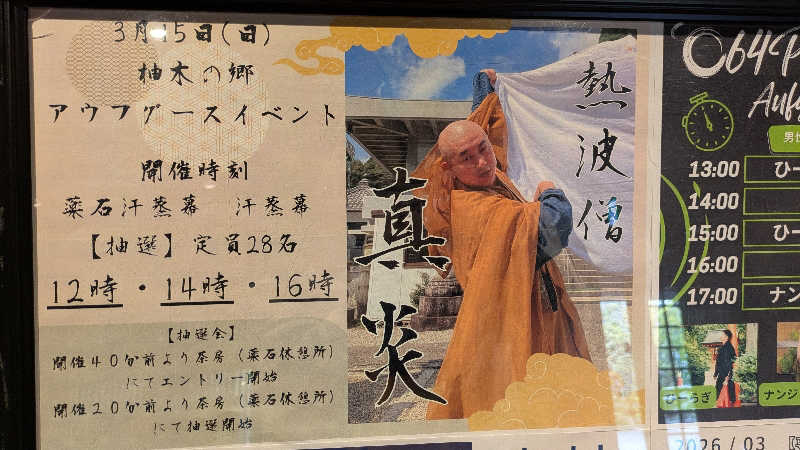 3月15日(日)
柚木の郷
アウフグースイベント
開催時刻
薬石汗蒸幕　汗蒸幕
【抽選】定員28名
12時・14時・16時
【抽選会】
開催40分前より茶房（薬石休憩所）
にてエントリー開始
開催20分前より茶房（薬石休憩所）
にて抽選開始
熱波僧
真炎
Auf
13:00 ひー
14:00
15:00 ひー
16:00
17:00 ナン
ひーらぎ
ナンジ
2026/03